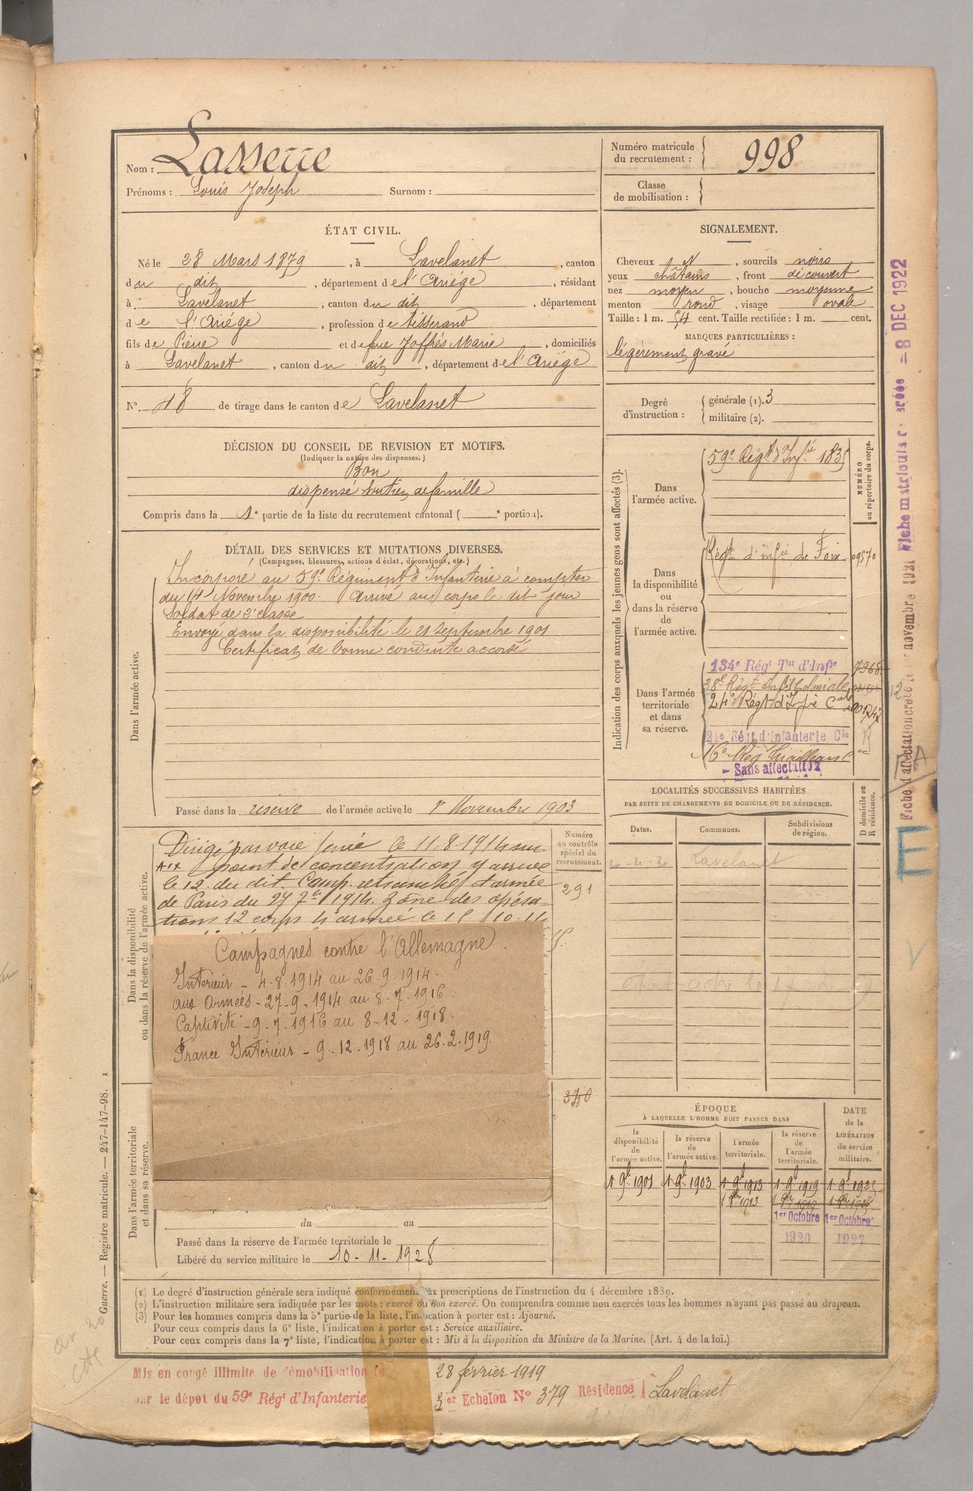 Nom : Lasserre
Prénoms : Louis Joseph Surnom :
Numéro matricule du recrutement : 998
Classe de mobilisation :
ÉTAT CIVIL.
Né le 28 Mars 1879, à Lavelanet, canton
du dit, département de l'Ariége, résidant
à Lavelanet, canton du dit, département
de l'Ariége, profession de tisserand
fils de Pierre et de feue Joffrés Marie, domiciliés
à Lavelanet, canton du dit, département de l'Ariége
N°. 18 de tirage dans le canton de Lavelanet
SIGNALEMENT.
Cheveux N, sourcils noirs
yeux châtains, front découvert
nez moyen, bouche moyenne
menton rond, visage ovale
Taille : 1 m. 54 cent. Taille rectifiée : 1 m. cent.
MARQUES PARTICULIÈRES :
légèrement gravé
Degré d'instruction : générale (1). 3
militaire (2).
DÉCISION DU CONSEIL DE REVISION ET MOTIFS.
(Indiquer la nature des dispenses.)
Bon
dispensé soutien de famille
Compris dans la 1e partie de la liste du recrutement cantonal ( e portion).
DÉTAIL DES SERVICES ET MUTATIONS DIVERSES.
(Campagnes, blessures, actions d'éclat, décorations, etc.)
Dans l'armée active.
Incorporé au 59e Régiment d'Infanterie à compter
du Novembre 1900. Arrivé au corps le dit jour
Soldat de 2e classe
Envoyé dans la disponibilité le 21 Septembre 1901
Certificat de bonne conduite accordé
Passé dans la réserve de l'armée active le 1er Novembre 1903
Indication des corps auxquels les jeunes gens sont affectés (3).
NUMÉRO au répertoire du corps.
Dans l'armée active.
59e Régt d'Infie 1835
Dans la disponibilité ou dans la réserve de l'armée active.
Régt d'infie de Foix 09570
Dans l'armée territoriale et dans sa réserve.
134e Régt Tal d'Infie
38e Régt Inf. Coloniale
24e Régt d'Infie Cale
21e Régt d'Infanterie Cle
16e Rég Tirailleurs
Sans affectation
LOCALITÉS SUCCESSIVES HABITÉES
PAR SUITE DE CHANGEMENTS DE DOMICILE OU DE RÉSIDENCE.
Dates. Communes. Subdivisions de région. D domicile ou R résidence.
Lavelanet
Dans la disponibilité ou dans la réserve de l'armée active.
Numéro au contrôle spécial du recrutement.
291
Dirigé par voie ferrée le 11.8.1914 sur
point de concentration y arrivé
le 12 du dit. Camp retranché d'armée
de Paris du 27 7bre 1914. Zone des opéra-
tions 12 corps d'armée le
Campagnes contre l'Allemagne.
Intérieur - 4-8 1914 au 26.9.1914.
aux Armées - 27-9.1914 au 8.7.1916.
Captivité - 9.7.1916 au 8-12.1918.
France Intérieur - 9.12.1918 au 26.2.1919.
Dans l'armée territoriale et dans sa réserve.
340
du au
Passé dans la réserve de l'armée territoriale le
Libéré du service militaire le 10-11-1928
ÉPOQUE
À LAQUELLE L'HOMME DOIT PASSER DANS
la disponibilité de l'armée active. la réserve de l'armée active. l'armée territoriale. la réserve de l'armée territoriale. DATE de la LIBÉRATION du service militaire.
1 9b 1901 1 9b 1903 1 9b 1913 1 9b 1919 1 9b 1925
1er Octobre 1920 1er Octobre 1927
(1) Le degré d'instruction générale sera indiqué conformément aux prescriptions de l'instruction du 4 décembre 1889.
(2) L'instruction militaire sera indiquée par les mots : exercé ou non exercé. On comprendra comme non exercés tous les hommes n'ayant pas passé au drapeau.
(3) Pour les hommes compris dans la 5e partie de la liste, l'indication à porter est : Ajourné.
Pour ceux compris dans la 6e liste, l'indication à porter est : Service auxiliaire.
Pour ceux compris dans la 7e liste, l'indication à porter est : Mis à la disposition du Ministre de la Marine. (Art. 4 de la loi.)
Mis en congé illimité de démobilisation le 28 février 1919
par le dépôt du 59e Régt d'Infanterie Echelon N° 379 Résidence Lavelanet
Guerre. — Registre matricule. — 247-147-98.
Fiche d'affectation créée le novembre 1921 Fiche matricule créée = 8 DEC 1922
E